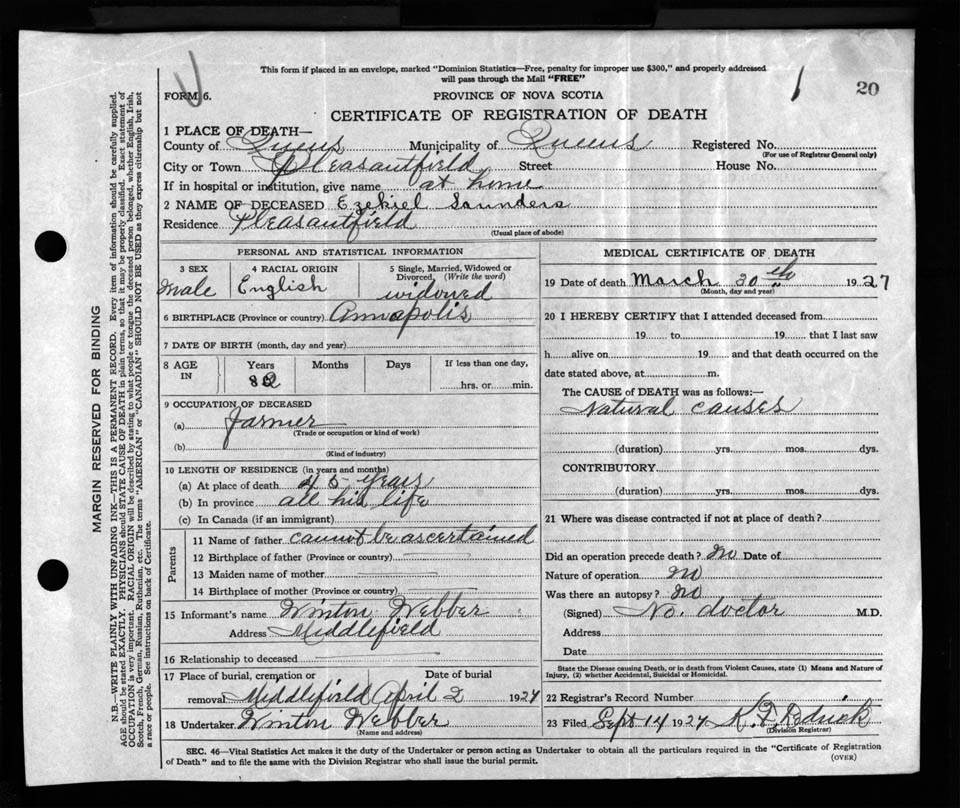 This form if placed in an envelope, marked "Dominion Statistics—Free, penalty for improper use $300," and properly addressed
will pass through the Mail "FREE"
20
FORM 6.
PROVINCE OF NOVA SCOTIA
CERTIFICATE OF REGISTRATION OF DEATH
1 PLACE OF DEATH—
County of Queens Municipality of Queens Registered No.
(For use of Registrar General only)
City or Town Pleasantfield Street House No.
If in hospital or institution, give name at home
2 NAME OF DECEASED Ezekiel Saunders
Residence Pleasantfield
(Usual place of abode)
PERSONAL AND STATISTICAL INFORMATION
3 SEX
Male
4 RACIAL ORIGIN
English
5 Single, Married, Widowed or
Divorced, (Write the word)
widowed
6 BIRTHPLACE (Province or country) Annapolis
7 DATE OF BIRTH (month, day and year)
8 AGE
IN
Years
82
Months
Days
If less than one day,
hrs. or min.
9 OCCUPATION OF DECEASED
(a) Farmer
(Trade or occupation or kind of work)
(b)
(Kind of industry)
10 LENGTH OF RESIDENCE (in years and months)
(a) At place of death 45 years
(b) In province all his life
(c) In Canada (if an immigrant)
Parents
11 Name of father cannot be ascertained
12 Birthplace of father (Province or country)
13 Maiden name of mother
14 Birthplace of mother (Province or country)
15 Informant's name Winton Webber
Address Middlefield
16 Relationship to deceased
17 Place of burial, cremation or Date of burial
removal Middlefield April 2 1927
18 Undertaker Winton Webber
(Name and address)
MEDICAL CERTIFICATE OF DEATH
19 Date of death March 30th 1927
(Month, day and year)
20 I HEREBY CERTIFY that I attended deceased from
19 to 19 that I last saw
h alive on 19 and that death occurred on the
date stated above, at m.
The CAUSE of DEATH was as follows:—
Natural causes
(duration) yrs. mos. dys.
CONTRIBUTORY
(duration) yrs. mos. dys.
21 Where was disease contracted if not at place of death?
Did an operation precede death? no Date of
Nature of operation no
Was there an autopsy? no
(Signed) No. doctor M.D.
Address
Date
State the Disease causing Death, or in death from Violent Causes, state (1) Means and Nature of
Injury, (2) whether Accidental, Suicidal or Homicidal.
22 Registrar's Record Number 6
23 Filed Sept 14 1927
(Division Registrar)
SEC. 46—Vital Statistics Act makes it the duty of the Undertaker or person acting as Undertaker to obtain all the particulars required in the "Certificate of Registration
of Death" and to file the same with the Division Registrar who shall issue the burial permit.
(OVER)
MARGIN RESERVED FOR BINDING
N.B.—WRITE PLAINLY WITH UNFADING INK—THIS IS A PERMANENT RECORD. Every item of information should be carefully supplied.
AGE should be stated EXACTLY. PHYSICIANS should STATE CAUSE OF DEATH in plain terms, so that it may be properly classified. Exact statement of
OCCUPATION is very important. RACIAL ORIGIN will be described by stating to what people or tongue the deceased person belonged, whether English, Irish,
Scotch, French, German, Russian, Ruthenian, etc. The terms "AMERICAN" or "CANADIAN" SHOULD NOT BE USED as they express citizenship but not
a race or people. See instructions on back of Certificate.